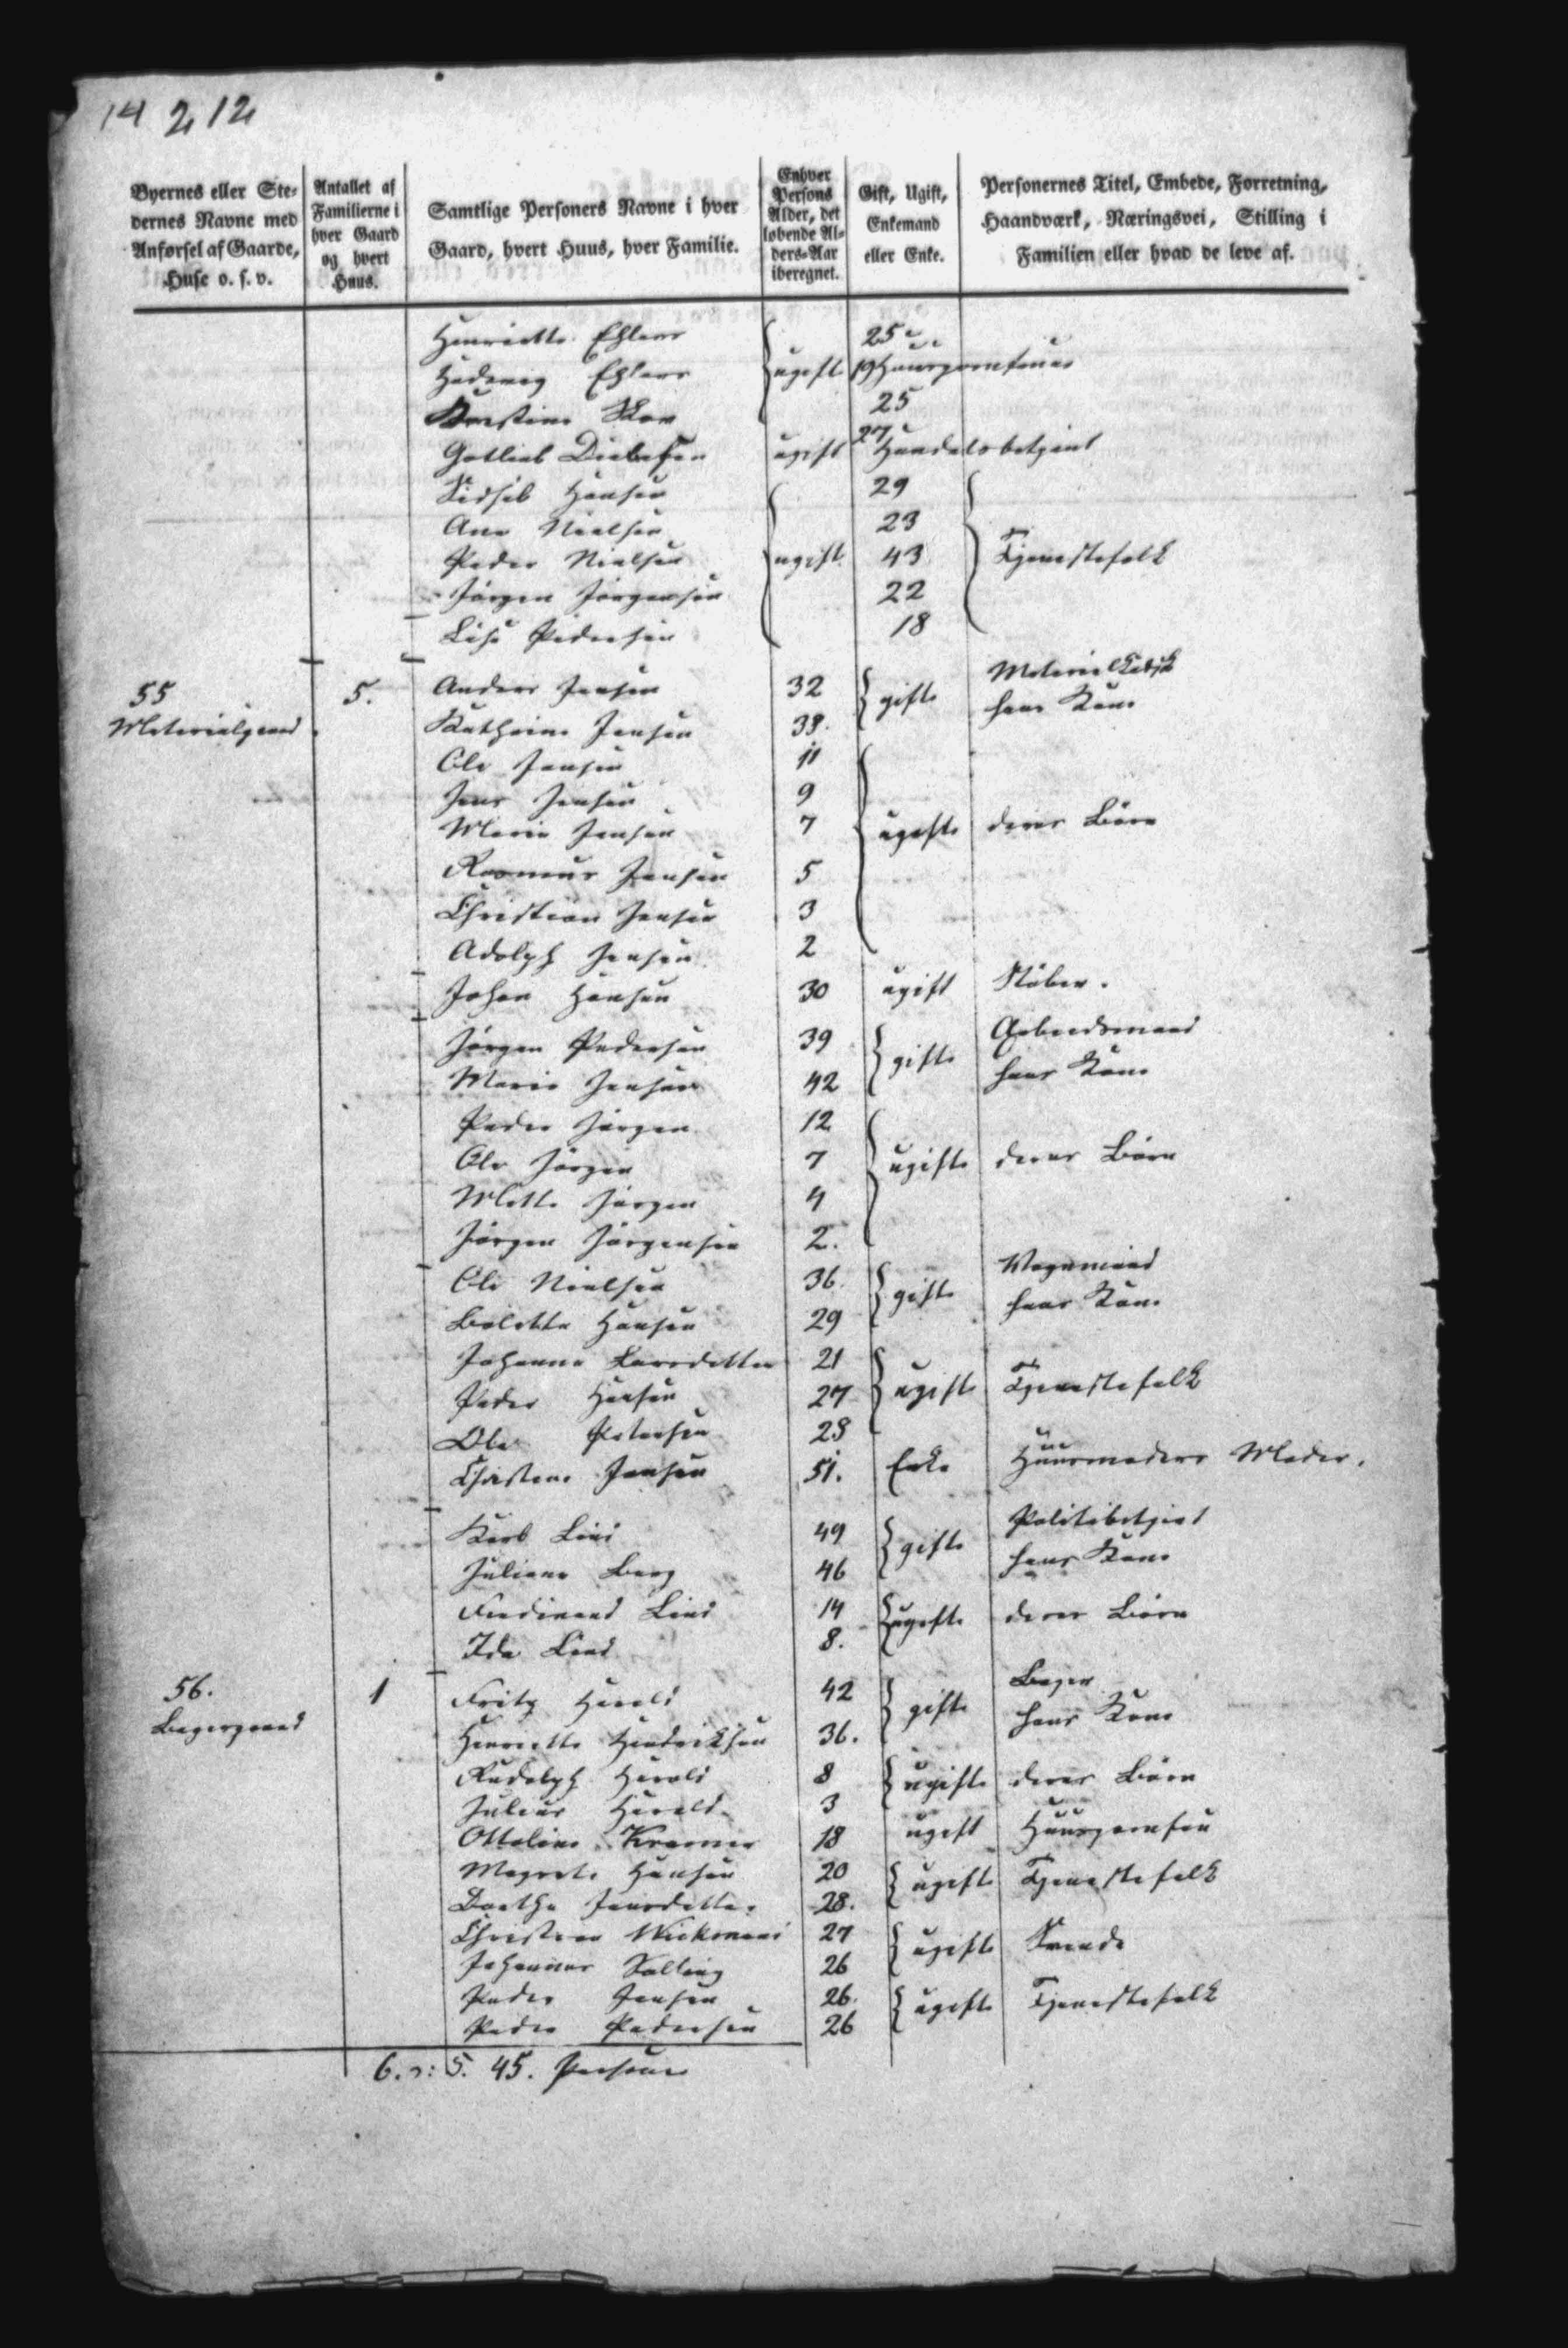 14 212
Byernes eller Ste-
dernes Navne med
Anførsel af Gaarde,
Huse o. s. v.
Antallet af
Familierne i
hver Gaard
og hvert
Huus.
Samtlige Personers Navne i hver
Gaard, hvert Huus, hver Familie.
Enhver
Persons
Alder, det
løbende Al-
ders-Aar
iberegnet.
Gift, Ugift,
Enkemand
eller Enke.
Personernes Titel, Embede, Forretning,
Haandværk, Næringsvei, Stilling i
Familien eller hvad de leve af.
Henriette Ehlers 25
Hedevig Ehlers ugift 19 Huusjomfruer
Kirstine 25
Gotlieb ugift 27 Handelsbetjent
Sidsel Hansen 29
Ane Nielsen 23
Peder Nielsen ugift 43 Tjenestefolk
Jørgen Jørgensen 22
Lise Pedersen 18
55 5. Anders Jensen 32 gifte
Materialgaard Kathrine Jensen 38. hans Kone
Ole Jensen 11
Jens Jensen 9
Marie Jensen 7 ugifte deres Børn
Rasmus Jensen 5
Christian Jensen 3
Adolph Jensen 2
Johan Hansen 30 ugift Støber.
Jørgen Pedersen 39 gifte Arbeidsmand
Marie Jensen 42 hans Kone
Peder Jørgen 12
Ole Jørgen 7 ugifte deres Børn
Mette Jørgen 4
Jørgen Jørgensen 2.
Ole Nielsen 36. gifte Vognmand
Bolette Hansen 29 hans Kone
Johanne Larsdatter 21
Peder Hansen 27 ugifte Tjenestefolk
Ole Petersen 28
Christine Jensen 51. Enke Huusmoders Moder.
Lind 49 gifte Politibetjent
Juliane Berg 46 hans Kone
Ferdinand Lind 14 ugifte deres Børn
Ida Lind 8.
56. 1 Fritz Herold 42 gifte Bager
Bagergaard Henriette Hendriksen 36. hans Kone
Rudolph Herold 8 ugifte deres Børn
Julius Herold 3
Ottoline Kramer 18 ugift Huusjomfru
Magrete Hansen 20 ugifte Tjenestefolk
Dorthe Jensdatter 28.
Christian Wickmand 27 ugifte Svende
Johannes Salling 26
Peder Jensen 26. ugifte Tjenestefolk
Peder Pedersen 26
6. 5. 45. Personer